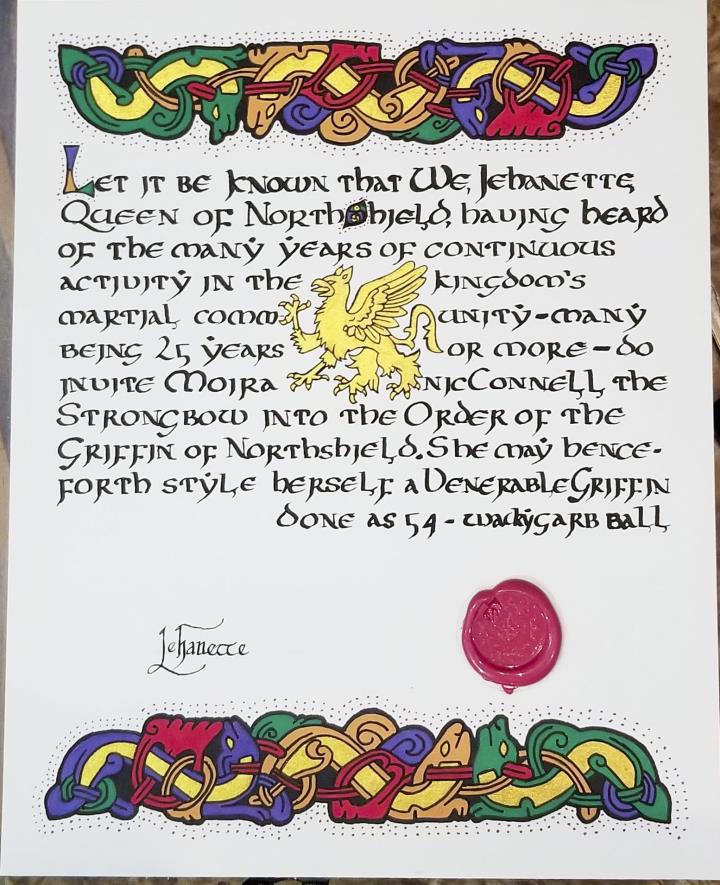 Let it be known that We, Jehanette,
Queen of Northshield, having heard
of the many years of continuous
activity in the kingdom's
martial community-many
being 25 years or more-do
invite Moira nicConnell the
Strongbow into the Order of the
Griffin of Northshield. She may hence-
forth style herself a Venerable Griffin
done as 54 - wackygarb ball
Jehanette